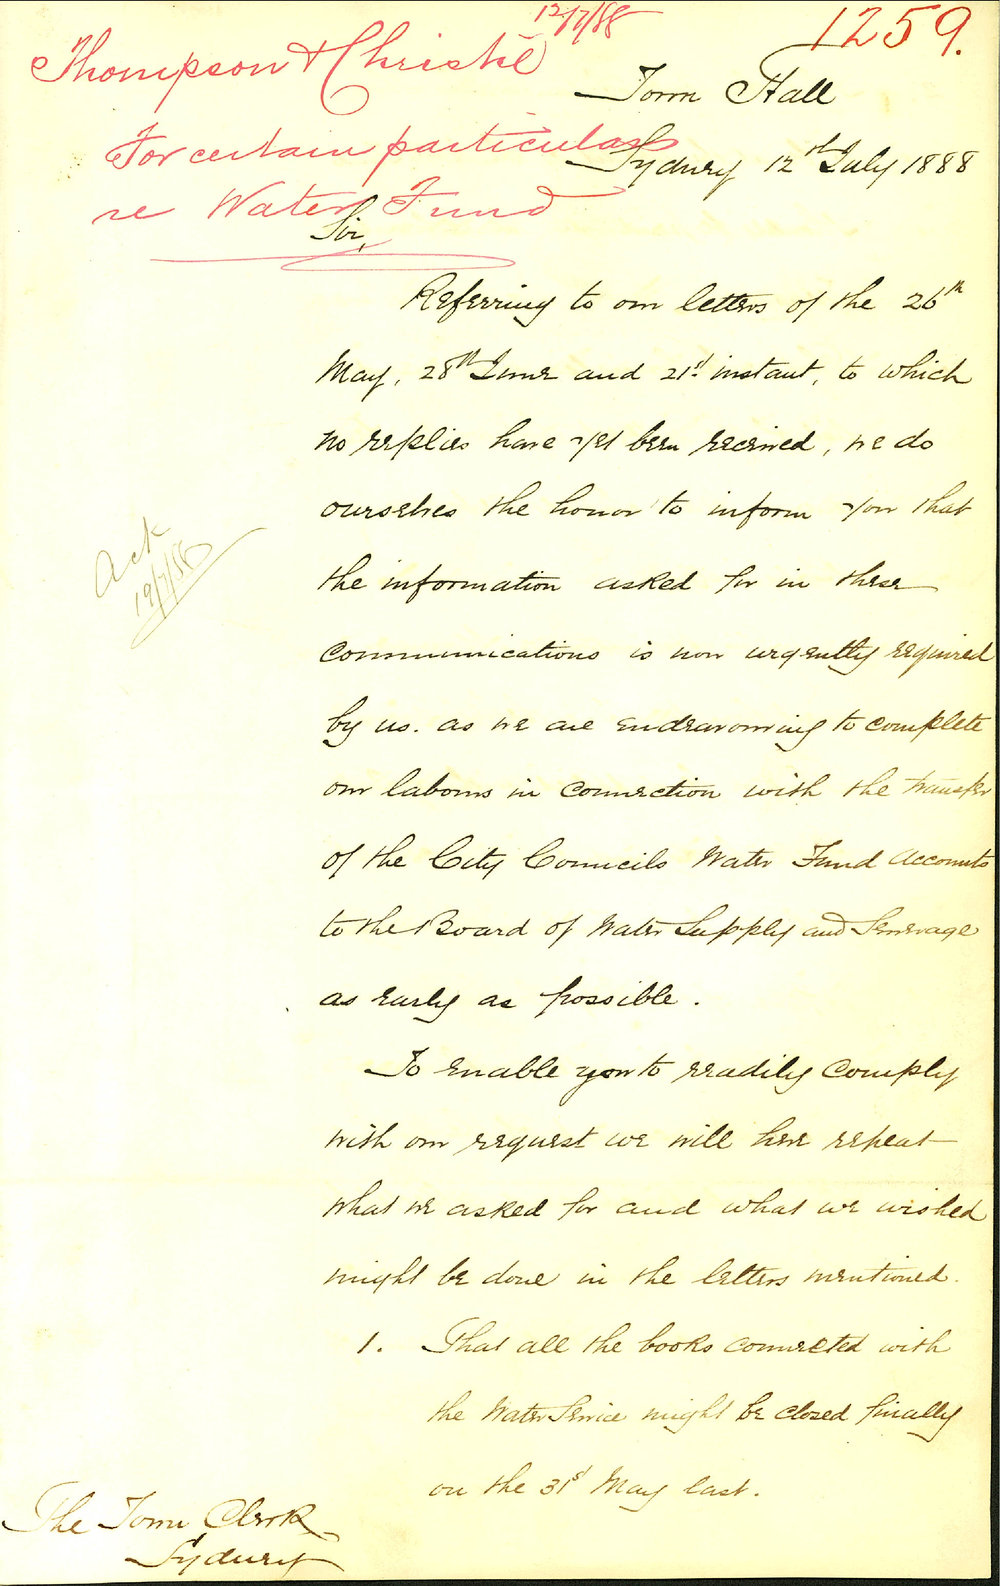 12/7/88
1259.
Thompson & Christie
Town Hall
For certain particulars
Sydney 12th July 1888
re Water Fund
Sir,
Referring to our letters of the 26th
May, 28th June and 21st instant, to which
no replies have yet been received, we do
ourselves the honor to inform you that
the information asked for in these
communications is now urgently required
by us. as we are endeavouring to complete
our labours in connection with the transfer
of the City Councils Water Fund Accounts
to the Board of Water Supply and Sewerage
as early as possible.
To enable you to readily comply
with our request we will here repeat
what we asked for and what we wished
might be done in the letters mentioned.
1. That all the books connected with
the Water Service might be closed finally
on the 31st May last.
The Town Clerk
Sydney
Ack
19/7/88